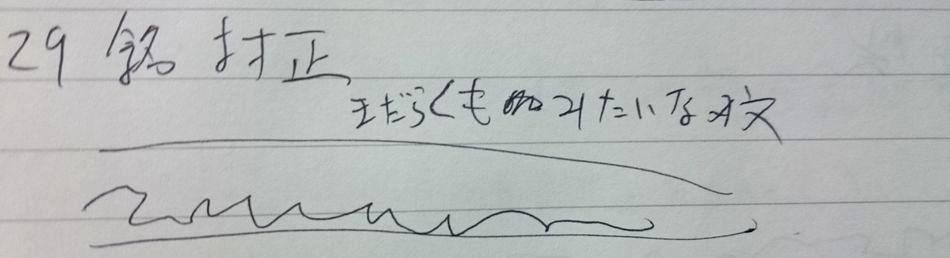 29 銘 村正
まだらくも みたいな 紋